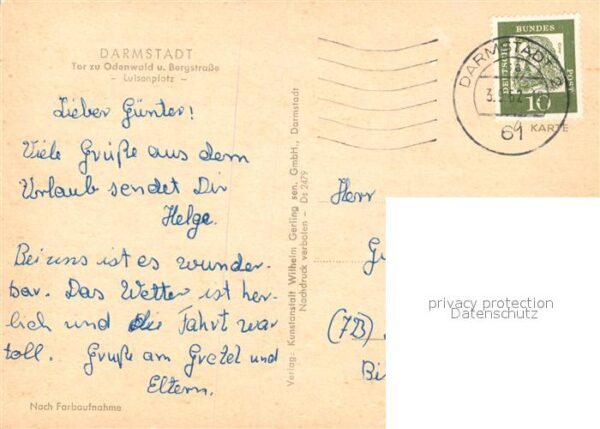 DARMSTADT
Tor zu Odenwald u. Bergstraße
– Luisenplatz –
Lieber Günter!
Viele Grüße aus dem
Urlaub sendet Dir
Helga.
Bei uns ist es wunder-
bar. Das Wetter ist her-
lich und die Fahrt war
toll. Gruße am Gretel und
Eltern.
Nach Farbaufnahme
Verlag: Kunstanstalt Wilhelm Gerling sen. GmbH., Darmstadt
Nachdruck verboten – Ds 2479
DEUTSCHE
BUNDES
POST
10
DARMSTADT 2
61
KARTE
Herr
(7B)
privacy protection
Datenschutz